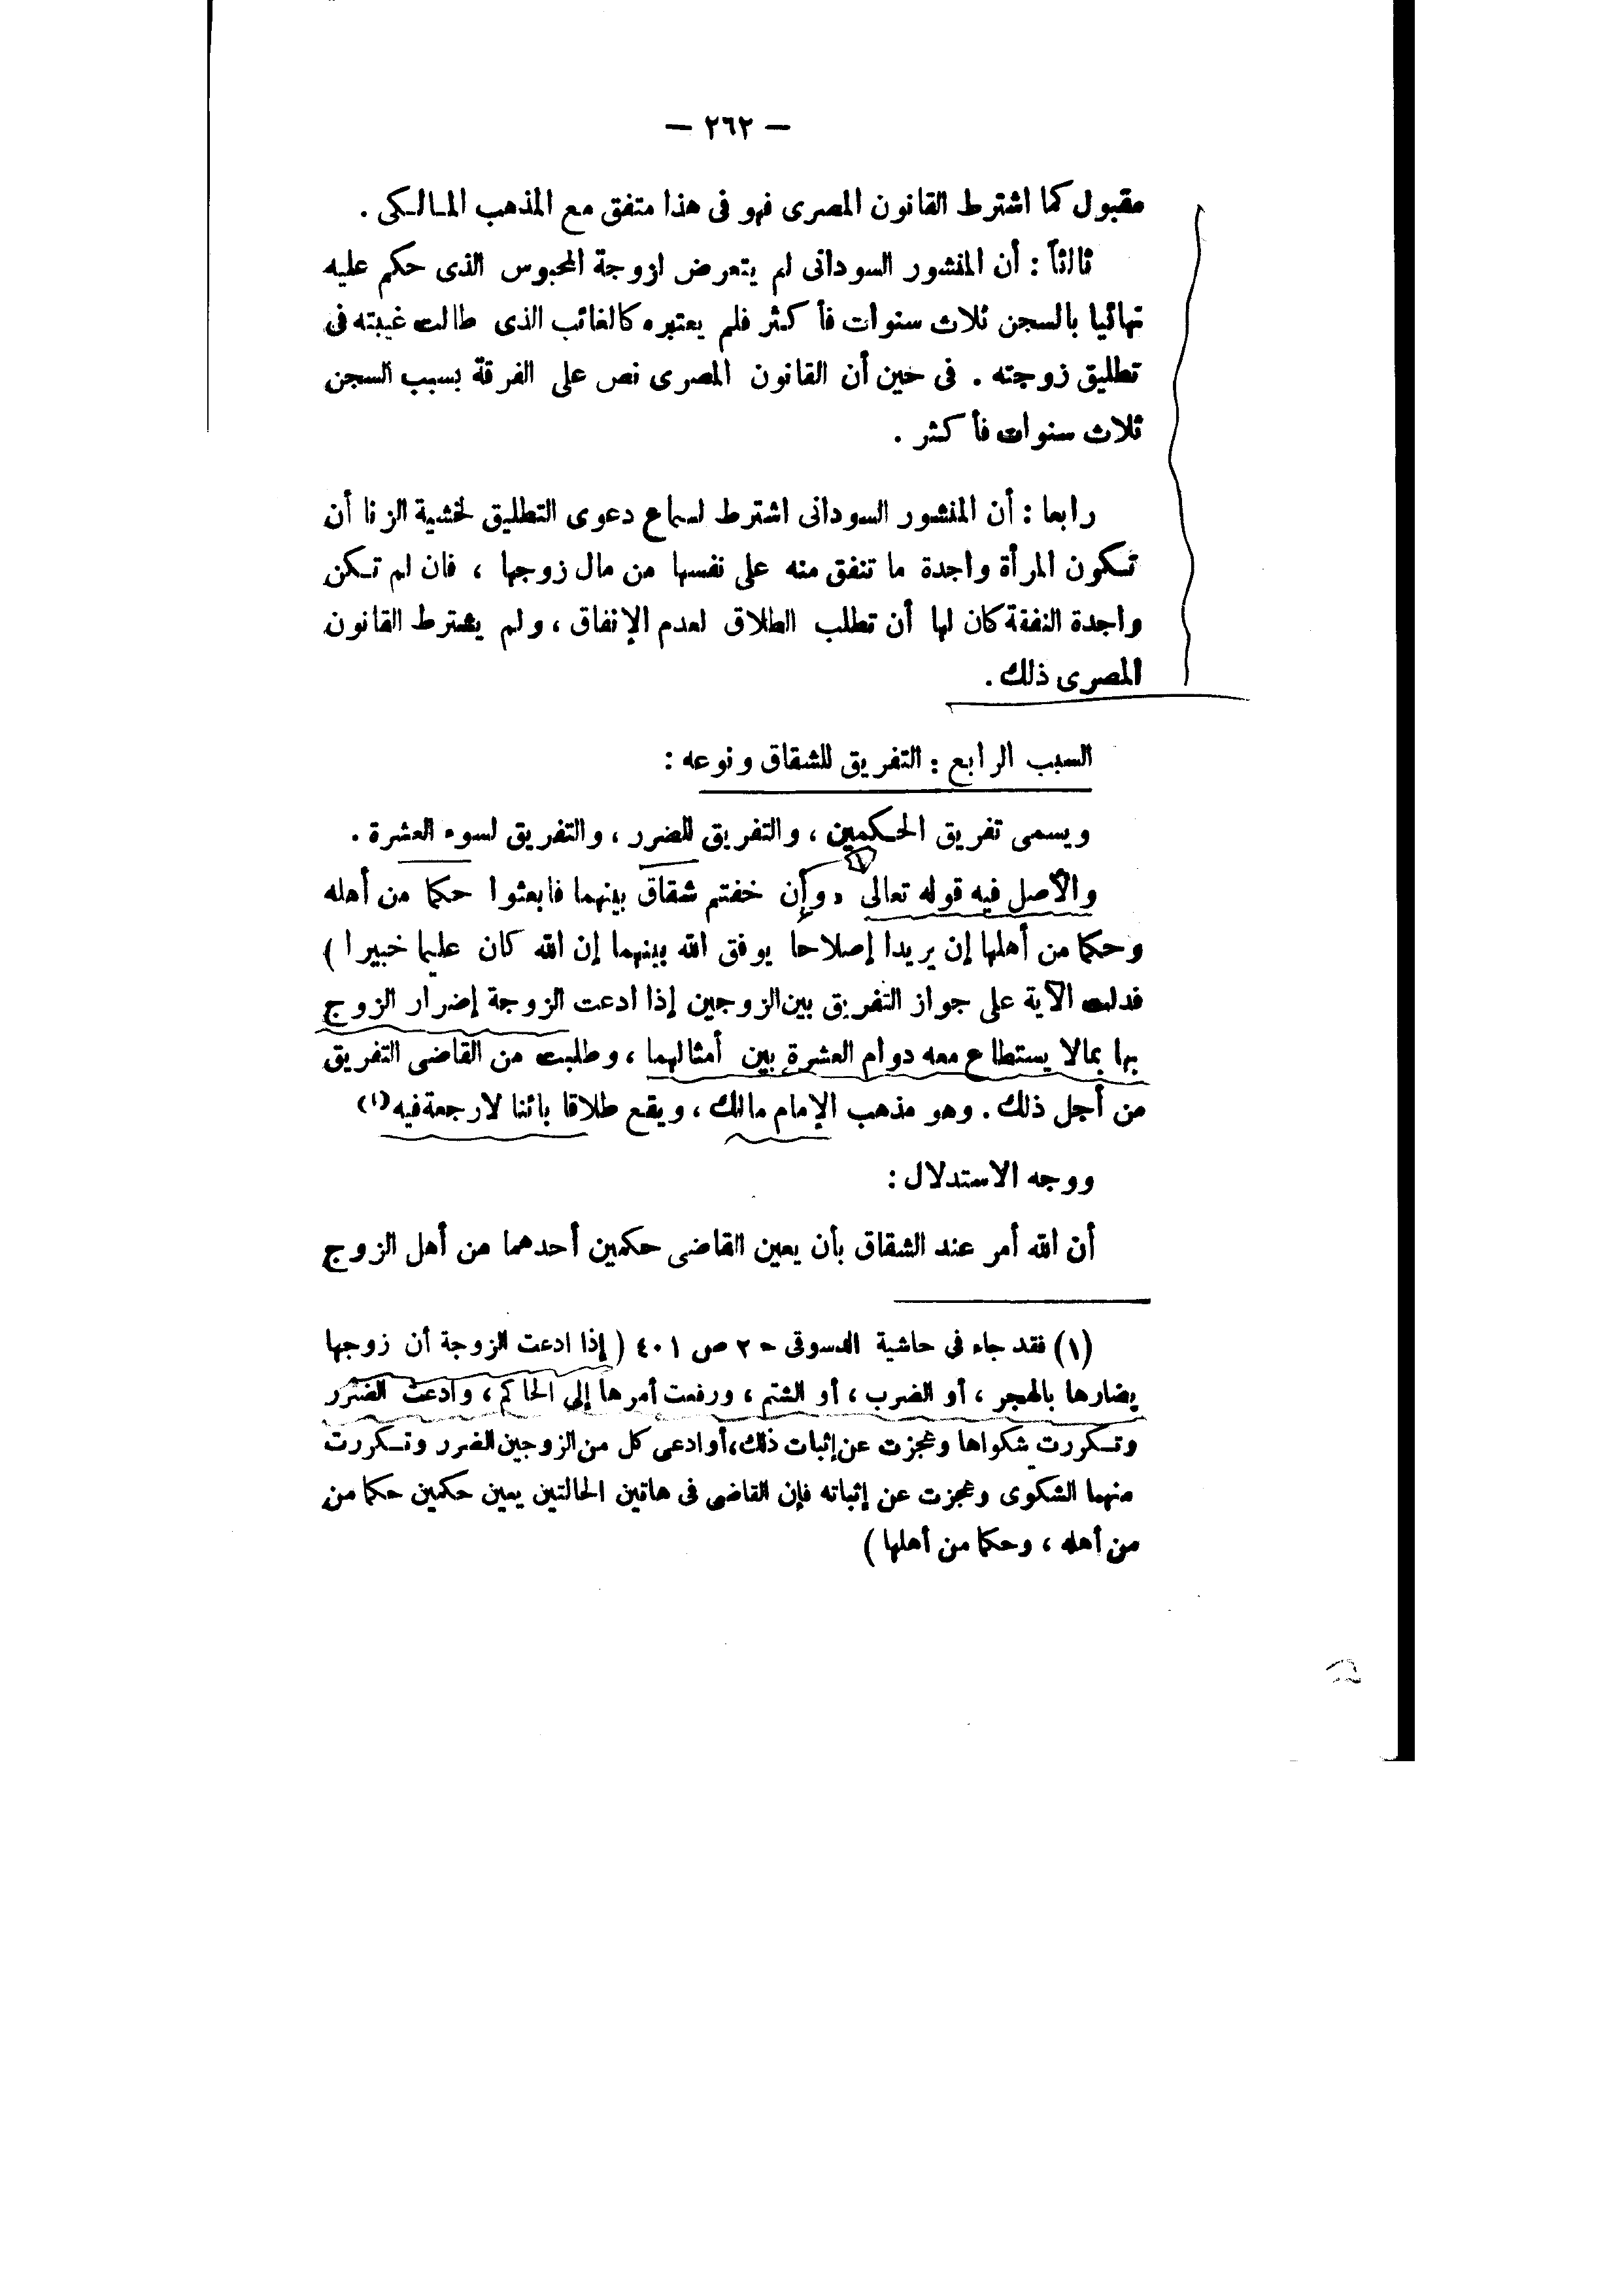 — ٢٦٢ —
مقبول كما اشترط القانون المصرى فهو فى هذا متفق مع المذهب المالكى .
ثالثاً : أن المنشور السودانى لم يتعرض لزوجة المحبوس الذى حكم عليه
نهائيا بالسجن ثلاث سنوات فأكثر فلم يعتبره كالغائب الذى طالت غيبته فى
تطليق زوجته . فى حين أن القانون المصرى نص على الفرقة بسبب السجن
ثلاث سنوات فأكثر .
رابعا : أن المنشور السودانى اشترط لسماع دعوى التطليق لخشية الزنا أن
تكون المرأة واجدة ما تنفق منه على نفسها من مال زوجها ، فان لم تكن
واجدة النفقة كان لها أن تطلب الطلاق لعدم الإنفاق ، ولم يشترط القانون
المصرى ذلك .
السبب الرابع : التفريق للشقاق ونوعه :
ويسمى تفريق الحكمين ، والتفريق للضرر ، والتفريق لسوء العشرة .
والأصل فيه قوله تعالى «وإن خفتم شقاق بينهما فابعثوا حكما من أهله
وحكما من أهلها إن يريدا إصلاحا يوفق الله بينهما إن الله كان عليما خبيرا )
فدلت الآية على جواز التفريق بين الزوجين إذا ادعت الزوجة إضرار الزوج
بها بمالا يستطاع معه دوام العشرة بين أمثالهما ، وطلبت من القاضى التفريق
من أجل ذلك . وهو مذهب الإمام مالك ، ويقع طلاقا بائنا لارجعة فيه (١)
ووجه الاستدلال :
أن الله أمر عند الشقاق بأن يعين القاضى حكمين أحدهما من أهل الزوج
(١) فقد جاء فى حاشية الدسوقى ح ٢ ص ٤٠١ ( إذا ادعت الزوجة أن زوجها
يضارها بالهجر ، أو الضرب ، أو الشتم ، ورفعت أمرها إلى الحاكم ، وادعت الضرر
وتكررت شكواها وعجزت عن إثبات ذلك ، أو ادعى كل من الزوجين الضرر وتكررت
منهما الشكوى وعجزت عن إثباته فإن القاضى فى هاتين الحالتين يعين حكمين حكما من
من أهله ، وحكما من أهلها )